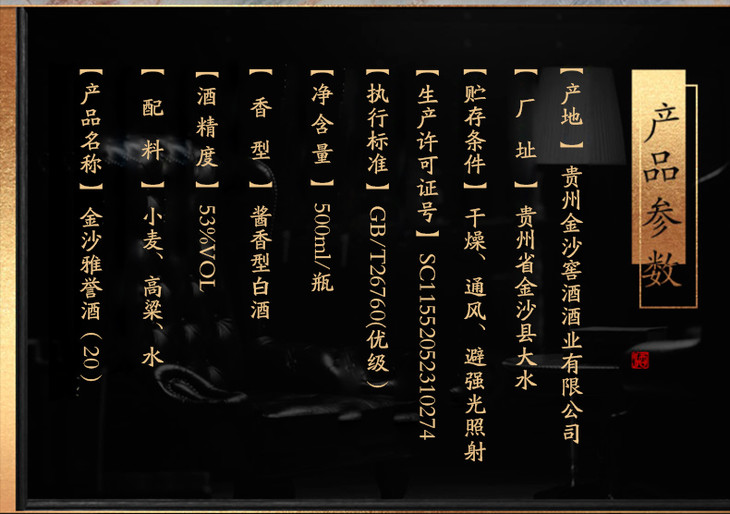 产品参数
【产地】贵州金沙窖酒酒业有限公司
【厂 址】贵州省金沙县大水
【贮存条件】干燥、通风、避强光照射
【生产许可证号】SC11552052310274
【执行标准】GB/T26760(优级)
【净含量】500ml/瓶
【香 型】酱香型白酒
【酒精度】53%VOL
【配 料】小麦、高粱、水
【产品名称】金沙雅誉酒(20)